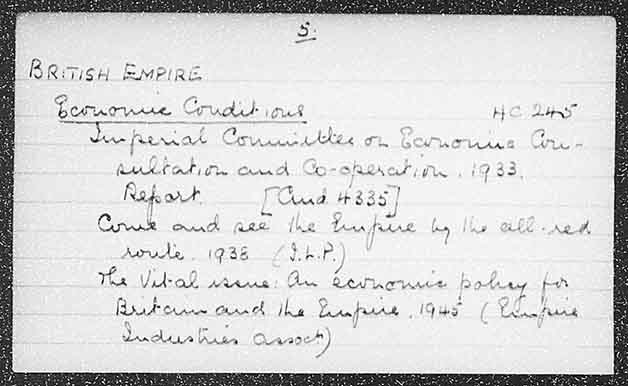 5.
BRITISH EMPIRE
Economic Conditions HC 245
Imperial Committee on Economic Con-
sultation and Co-operation. 1933.
Report. [Cmd 4335]
Come and see the Empire by the all-red
route. 1938 (I.L.P.)
The Vital issue: An economic policy for
Britain and the Empire. 1945 (Empire
Industries assoctn)